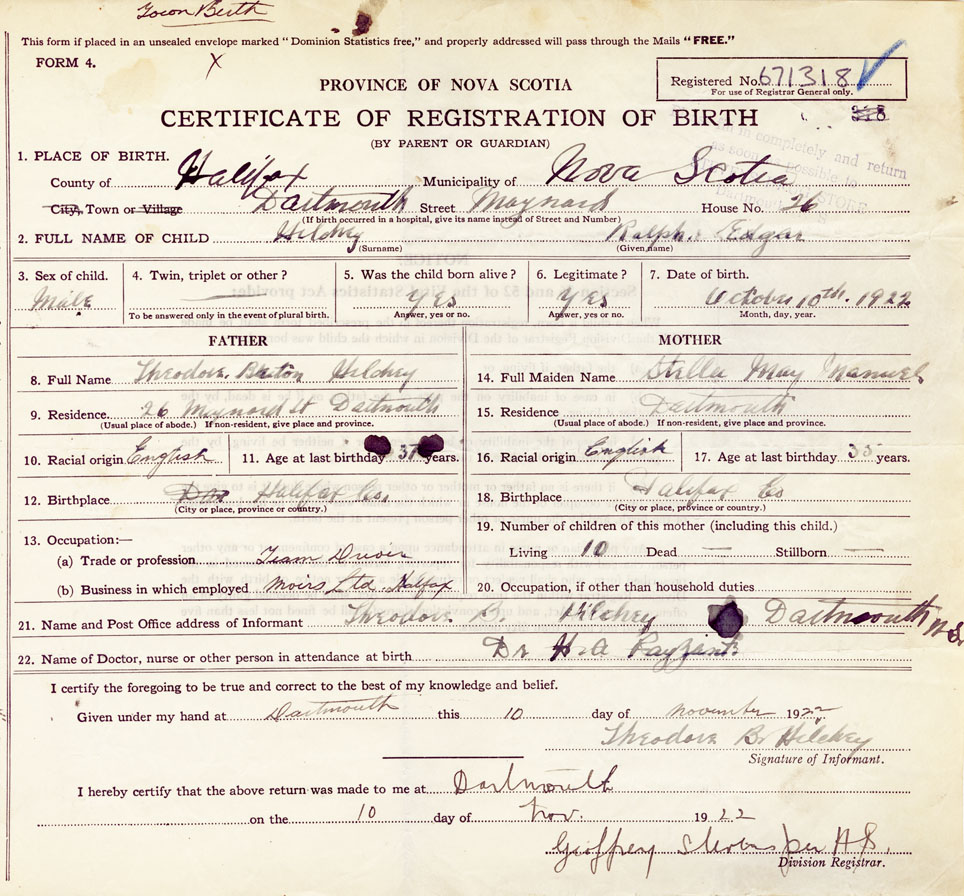 Town Birth
This form if placed in an unsealed envelope marked "Dominion Statistics free," and properly addressed will pass through the Mails "FREE."
FORM 4. X
Registered No. 671318
For use of Registrar General only.
PROVINCE OF NOVA SCOTIA
CERTIFICATE OF REGISTRATION OF BIRTH 318
(BY PARENT OR GUARDIAN)
fill in completely and return
as soon as possible to
1. PLACE OF BIRTH.
County of Halifax Municipality of Nova Scotia
City, Town or Village Dartmouth Street Maynard House No. 26
(If birth occurred in a hospital, give its name instead of Street and Number)
2. FULL NAME OF CHILD Hilchey Ralph Edgar
(Surname) (Given name)
3. Sex of child. 4. Twin, triplet or other? 5. Was the child born alive? 6. Legitimate? 7. Date of birth.
Male — Yes Yes October 10th. 1922
To be answered only in the event of plural birth. Answer, yes or no. Answer, yes or no. Month, day, year.
FATHER MOTHER
8. Full Name Theodore Hilchey 14. Full Maiden Name Stella May Manuel
9. Residence 26 Maynard St Dartmouth 15. Residence Dartmouth
(Usual place of abode.) If non-resident, give place and province. (Usual place of abode.) If non-resident, give place and province.
10. Racial origin English 11. Age at last birthday 37 years. 16. Racial origin English 17. Age at last birthday 35 years.
12. Birthplace Halifax Co. 18. Birthplace Halifax Co
(City or place, province or country.) (City or place, province or country.)
13. Occupation:— 19. Number of children of this mother (including this child.)
(a) Trade or profession Team Driver Living 10 Dead — Stillborn —
(b) Business in which employed Moirs Ltd. Halifax 20. Occupation, if other than household duties
21. Name and Post Office address of Informant Theodore B. Hilchey Dartmouth N.S.
22. Name of Doctor, nurse or other person in attendance at birth Dr H. A Payzant
I certify the foregoing to be true and correct to the best of my knowledge and belief.
Given under my hand at Dartmouth this 10 day of November 1922
Theodore B. Hilchey
Signature of Informant.
I hereby certify that the above return was made to me at Dartmouth
on the 10 day of Nov. 1922
Geoffrey Stevens per H.S.
Division Registrar.